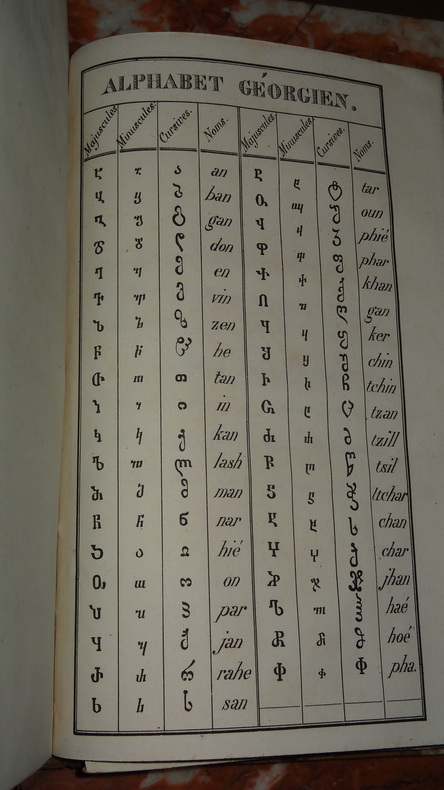 ALPHABET GÉORGIEN.
Majuscules. Minuscules. Cursives. Noms. Majuscules. Minuscules. Cursives. Noms.
Ⴀ ⴀ ა an Ⴒ ⴒ ტ tar
Ⴁ ⴁ ბ ban Ⴓ ⴓ უ oun
Ⴂ ⴂ გ gan Ⴣ ⴣ ჳ phié
Ⴃ ⴃ დ don Ⴔ ⴔ ფ phar
Ⴄ ⴄ ე en Ⴕ ⴕ ქ khan
Ⴅ ⴅ ვ vin Ⴖ ⴖ ღ gan
Ⴆ ⴆ ზ zen Ⴗ ⴗ ყ ker
Ⴡ ⴡ ჱ he Ⴘ ⴘ შ chin
Ⴇ ⴇ თ tan Ⴙ ⴙ ჩ tchin
Ⴈ ⴈ ი in Ⴚ ⴚ ც tzan
Ⴉ ⴉ კ kan Ⴛ ⴛ ძ tzill
Ⴊ ⴊ ლ lash Ⴜ ⴜ წ tsil
Ⴋ ⴋ მ man Ⴝ ⴝ ჭ
Ⴌ ⴌ ნ nar Ⴞ ⴞ ხ chan
Ⴢ ⴢ ჲ hié Ⴤ ⴤ ჴ char
Ⴍ ⴍ ო on Ⴟ ⴟ ჯ jhan
Ⴎ ⴎ პ par Ⴠ ⴠ ჰ haé
Ⴏ ⴏ ჟ jan Ⴥ ⴥ ჵ hoé
Ⴐ ⴐ რ rahe Φ ϕ Φ pha.
Ⴑ ⴑ ს san